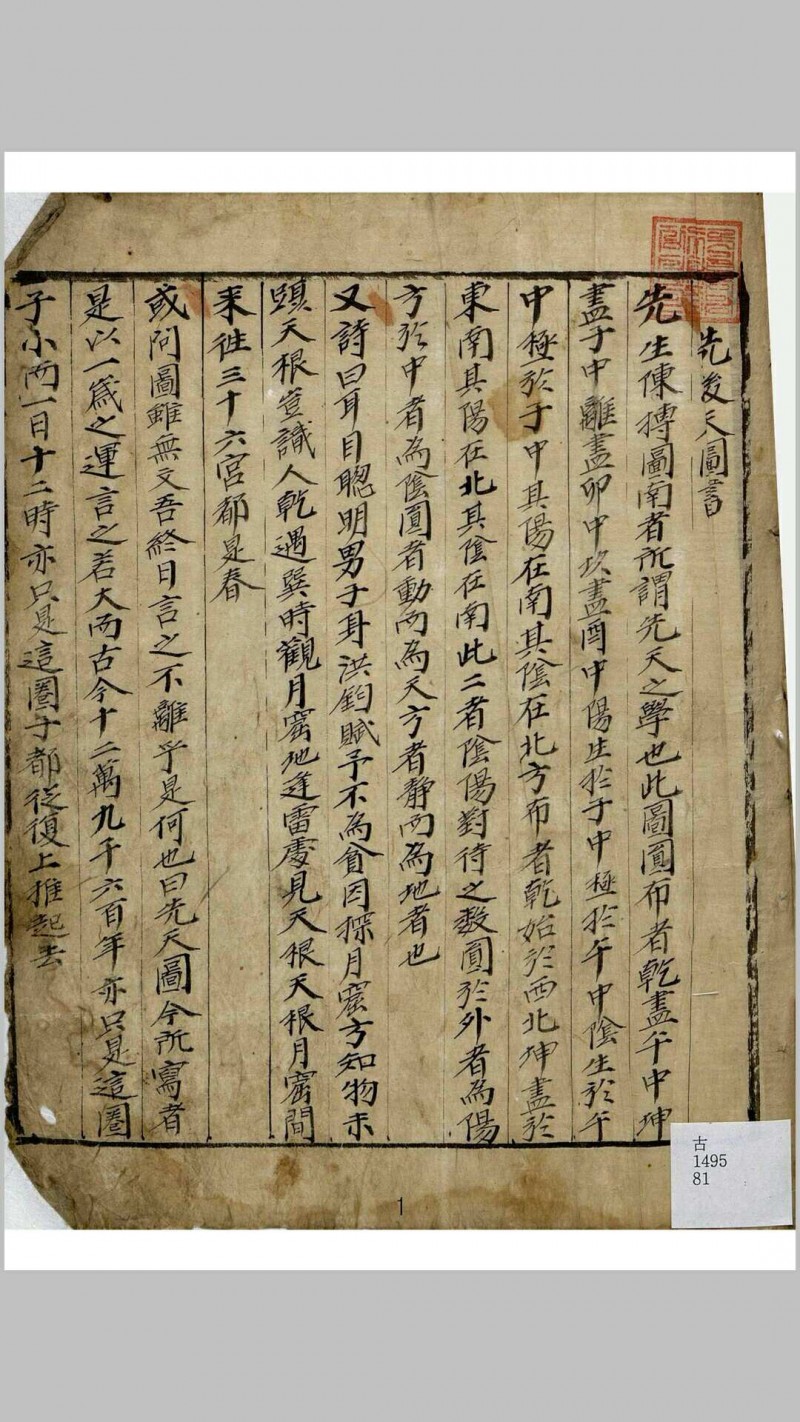 先後天圖書
先生陳摶圖南者所謂先天之學也此圖圓布者乾盡午中坤
盡子中離盡卯中坎盡酉中陽生於子中極於午中陰生於午
中極於子中其陽在南其陰在北方布者乾始於西北坤盡於
東南其陽在北其陰在南此二者陰陽對待之數圓於外者為陽
方於中者為陰圓者動而為天方者靜而為地者也
又詩曰耳目聰明男子身洪鈞賦予不為貧因探月窟方知物未
躡天根豈識人乾遇巽時觀月窟地逢雷處見天根天根月窟間
來往三十六宮都是春
或问圖雖無文吾終日言之不離乎是何也曰先天圖今所寫者
是以一歲之運言之若大而古今十二萬九千六百年亦只是這圈
子小而一日十二時亦只是這圈子都從復上推起去
古
1495
81
1